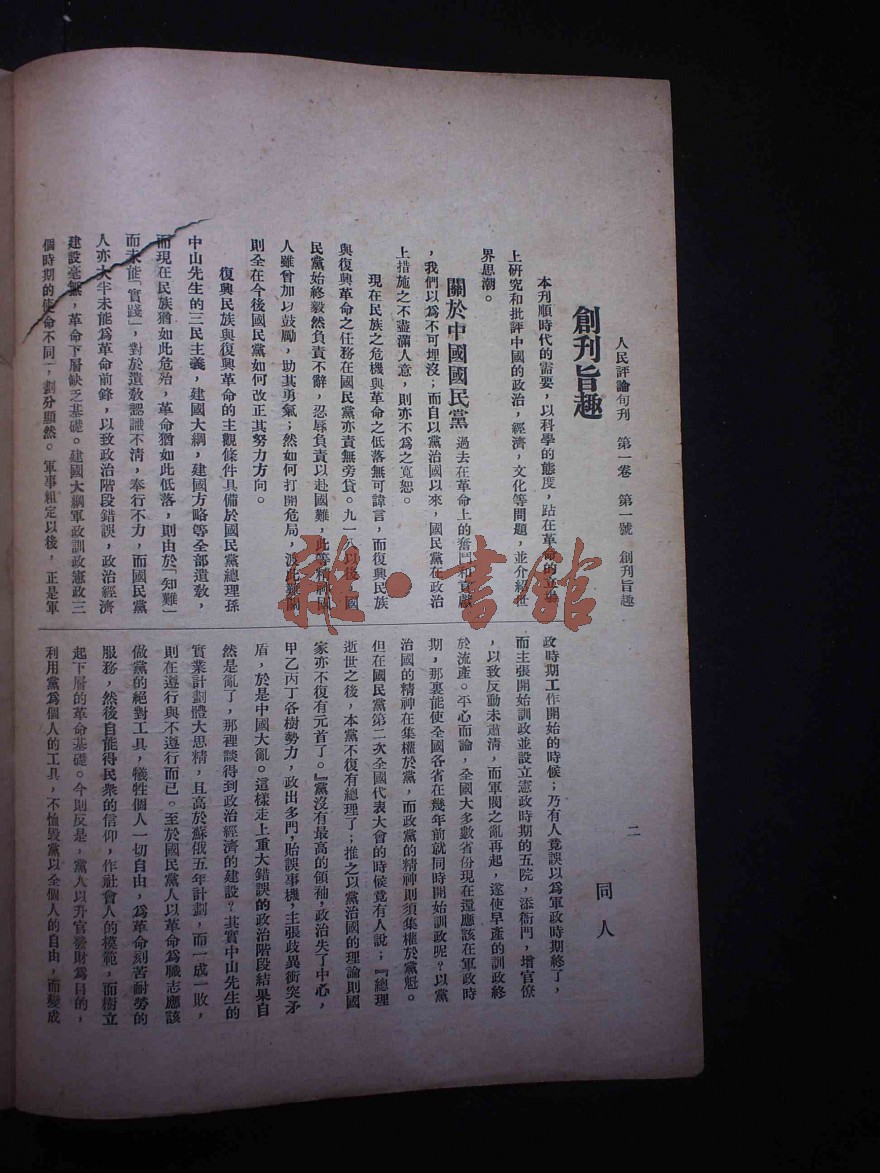 人民評論旬刊　第一卷　第一號　創刊旨趣
二
創刊旨趣
同人
本刊順時代的需要，以科學的態度，站在革命的立場
上研究和批評中國的政治，經濟，文化等問題，並介紹世
界思潮。
關於中國國民黨　過去在革命上的奮鬥和貢獻
，我們以為不可埋沒；而自以黨治國以來，國民黨在政治
上措施之不盡滿人意，則亦不為之寬恕。
現在民族之危機與革命之低落無可諱言，而復興民族
與復興革命之任務在國民黨亦責無旁貸。九一八以後，國
民黨始終毅然負責不辭，忍辱負責以赴國難，此等精神國
人雖曾加以鼓勵，助其勇氣；然如何打開危局，渡此難關
則全在今後國民黨如何改正其努力方向。
復興民族與復興革命的主觀條件具備於國民黨總理孫
中山先生的三民主義，建國大綱，建國方略等全部遺敎，
而現在民族猶如此危殆，革命猶如此低落，則由於「知難」
而未能「實踐」，對於遺敎認識不清，奉行不力，而國民黨
人亦大半未能為革命前鋒，以致政治階段錯誤，政治經濟
建設毫無，革命下層缺乏基礎。建國大綱軍政訓政憲政三
個時期的使命不同，劃分顯然。軍事粗定以後，正是軍
政時期工作開始的時候；乃有人竟誤以為軍政時期終了，
而主張開始訓政並設立憲政時期的五院，添衙門，增官僚
，以致反動未肅清，而軍閥之亂再起，遂使早產的訓政終
於流產。平心而論，全國大多數省份現在還應該在軍政時
期，那裏能使全國各省在幾年前就同時開始訓政呢？以黨
治國的精神在集權於黨，而政黨的精神則須集權於黨魁。
但在國民黨第二次全國代表大會的時候竟有人說；『總理
逝世之後，本黨不復有總理了；推之以黨治國的理論則國
家亦不復有元首了。』黨沒有最高的領袖，政治失了中心，
甲乙丙丁各樹勢力，政出多門，貽誤事機，主張歧異衝突矛
盾，於是中國大亂。這樣走上重大錯誤的政治階段結果自
然是亂了，那裡談得到政治經濟的建設？其實中山先生的
實業計劃體大思精，且高於蘇俄五年計劃，而一成一敗，
則在遵行與不遵行而已。至於國民黨人以革命為職志應該
做黨的絕對工具，犧牲個人一切自由，為革命刻苦耐勞的
服務，然後自能得民衆的信仰，作社會人的模範，而樹立
起下層的革命基礎。今則反是，黨人以升官發財為目的，
利用黨為個人的工具，不恤毀黨以全個人的自由，而變成
雜·書館